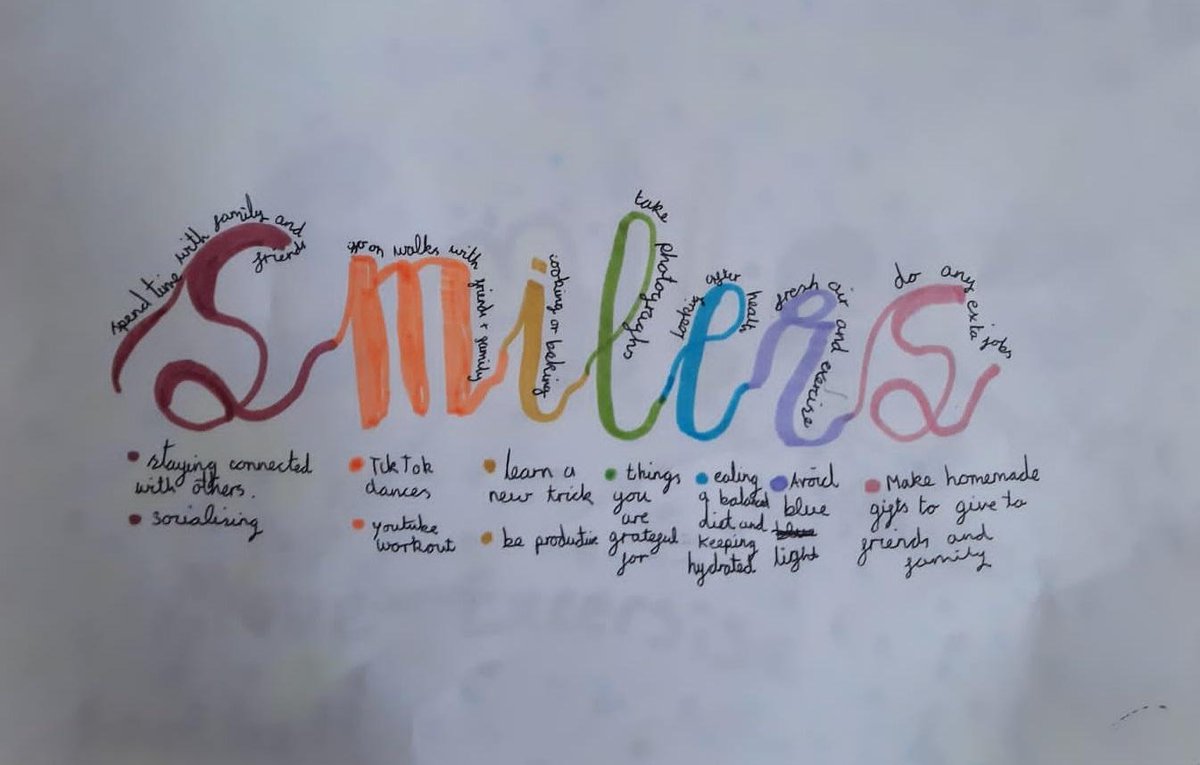 spend time with family and friends
go on walks with friends + family
cooking or baking
take photographs
looking after health
fresh air and exercise
do any extra jobs
Smilers
• staying connected
with others.
• socialising
• TikTok
dances
• youtube
workout
• learn a
new trick
• be productive
• things
you
are
grateful
for
• eating
a balaced
diet and
keeping
hydrated
• Avoid
blue
light
• Make homemade
gifts to give to
friends and
family